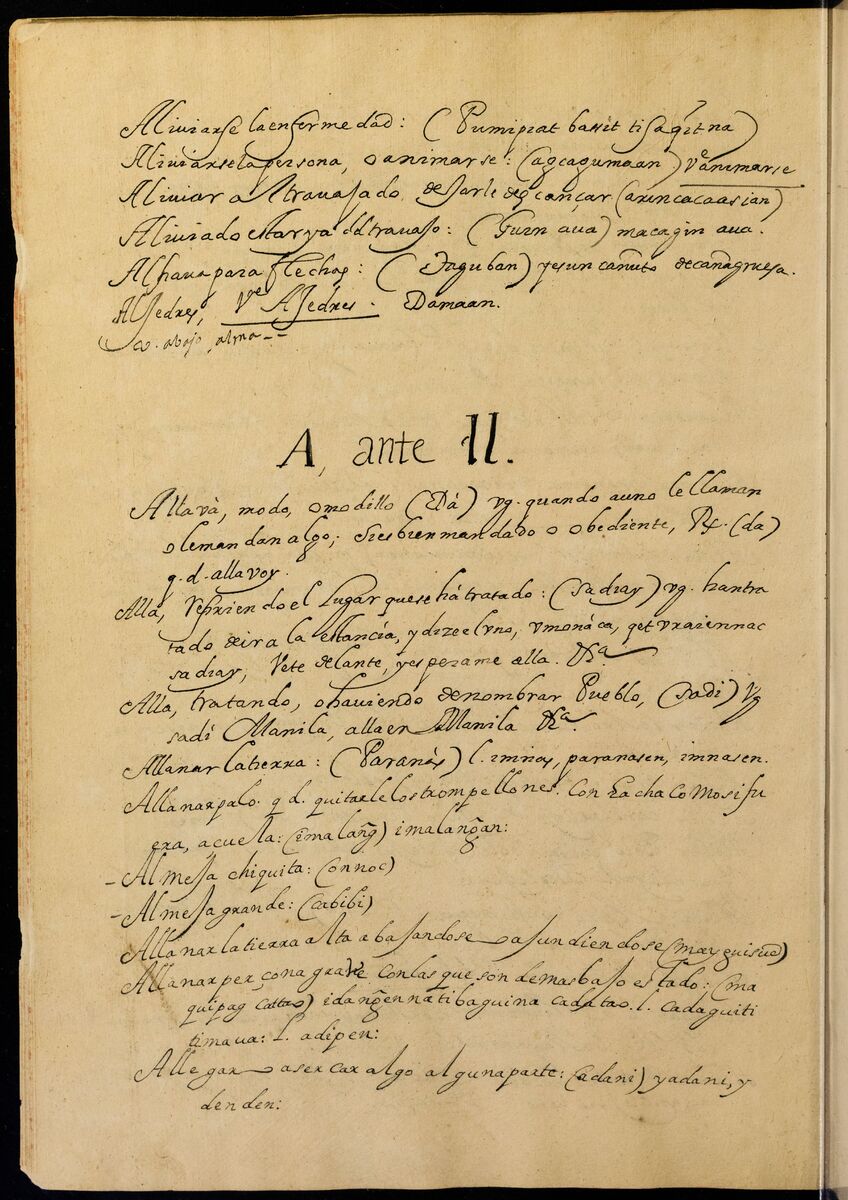 Aliviarse la enfermedad: (Pumipiat bassit ti sagitna)
Aliviarse la persona, o animarse: (agcagumaan) Ve animarse
Aliviar al travajado
Aliviado estar ya del travajo: (Guin ava) macagin ava.
Aljhava para flechas: yes un cañuto de cañagruesa.
Aljedres, Ve Ajedres. Damaan.
abajo, alma--
A, ante ll.
Alla và, modo, o modillo (Dá) vg. quando a uno le llaman
o le mandan algo; si es bien mandado o obediente, (da)
q. d. alla voy.
Alla, el Lugar que se há tratado: (sadiay) vg. han tra
tado de ir a la estancia, y dize el vno,
sadiay, Vete delante, y esperame alla. &a.
Alla, tratando, o haviendo de nombrar Pueblo, (sadi) vg
sadi Manila, alla en Manila &a.
Allanar la tierra: (Paranàs) l. imnas, paranasen, imnasen.
Allanar palo. q d. quitarle los trompellones. Con hacha como si fu
era, acuela: imalangan:
- Almeja chiquita: (onnoc)
- Almeja grande: (cabibi)
Allanar la tierra alta abajandose
Allanar perçona grave con las que son de mas bajo estado: (ma
l. cadaguiti
timaua: l. adipen:
Allegar asercar algo alguna parte: (adani) yadani, y
denden: